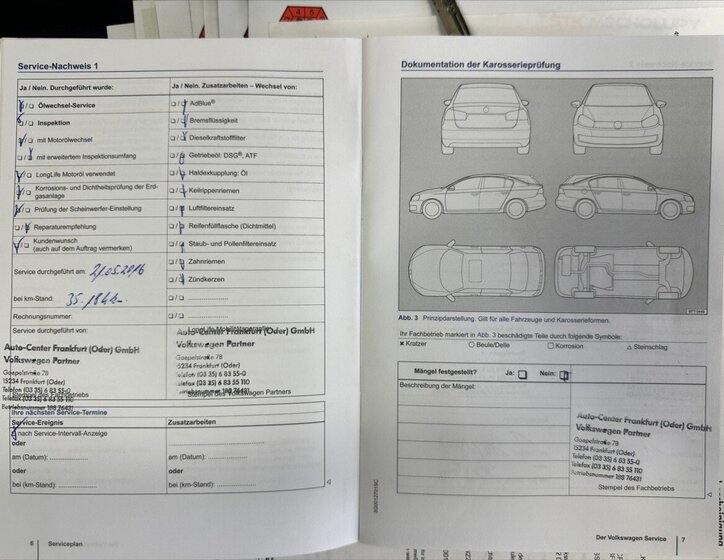 Service-Nachweis 1
Ja / Nein. Durchgeführt wurde:
Ölwechsel-Service
Inspektion
mit Motorölwechsel
mit erweitertem Inspektionsumfang
LongLife Motoröl verwendet
Korrosions- und Dichtheitsprüfung der Erd-
gasanlage
Prüfung der Scheinwerfer-Einstellung
Reparaturempfehlung
Kundenwunsch
(auch auf dem Auftrag vermerken)
Service durchgeführt am: 21.05.2016
bei km-Stand:
Rechnungsnummer:
Service durchgeführt von:
Auto-Center Frankfurt (Oder) GmbH
Volkswagen Partner
Goepelstraße 78
15234 Frankfurt (Oder)
Telefon (03 35) 6 83 55-0
Telefax (03 35) 6 83 55 110
Betriebsnummer 188 76431
Stempel des Fachbetriebs
Ja / Nein. Zusatzarbeiten – Wechsel von:
AdBlue®
Bremsflüssigkeit
Dieselkraftstofffilter
Getriebeöl: DSG®, ATF
Haldexkupplung: Öl
Keilrippenriemen
Luftfiltereinsatz
Reifenfüllflasche (Dichtmittel)
Staub- und Pollenfiltereinsatz
Zahnriemen
Zündkerzen
Auto-Center Frankfurt (Oder) GmbH
Volkswagen Partner
Goepelstraße 78
15234 Frankfurt (Oder)
Telefon (03 35) 6 83 55-0
Telefax (03 35) 6 83 55 110
Betriebsnummer 188 76431
Stempel des Volkswagen Partners
Ihre nächsten Service-Termine
Service-Ereignis
nach Service-Intervall-Anzeige
oder
am (Datum):
oder
bei (km-Stand):
Zusatzarbeiten
am (Datum):
oder
bei (km-Stand):
6 Serviceplan
Dokumentation der Karosserieprüfung
Abb. 3 Prinzipdarstellung. Gilt für alle Fahrzeuge und Karosserieformen.
Ihr Fachbetrieb markiert in Abb. 3 beschädigte Teile durch folgende Symbole:
× Kratzer ○ Beule/Delle □ Korrosion △ Steinschlag
Mängel festgestellt? Ja: Nein:
Beschreibung der Mängel:
Auto-Center Frankfurt (Oder) GmbH
Volkswagen Partner
Goepelstraße 78
15234 Frankfurt (Oder)
Telefon (03 35) 6 83 55-0
Telefax (03 35) 6 83 55 110
Betriebsnummer 188 76431
Stempel des Fachbetriebs
Der Volkswagen Service 7